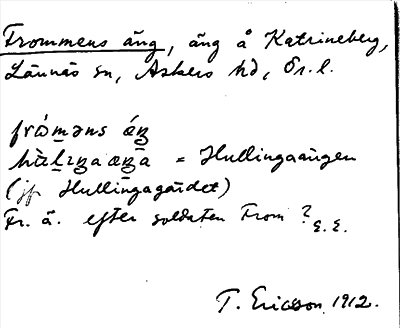 Frommens äng, äng å Katrineberg,
Lännäs sn, Askers hd, Ör. l.
fròm̱əns áŋ̱
hàḻɪŋa æŋ̱a = Hullingaängen
(jfr Hullingagärdet)
Fr. ä. efter soldaten From? E. E.
T. Ericsson 1912.